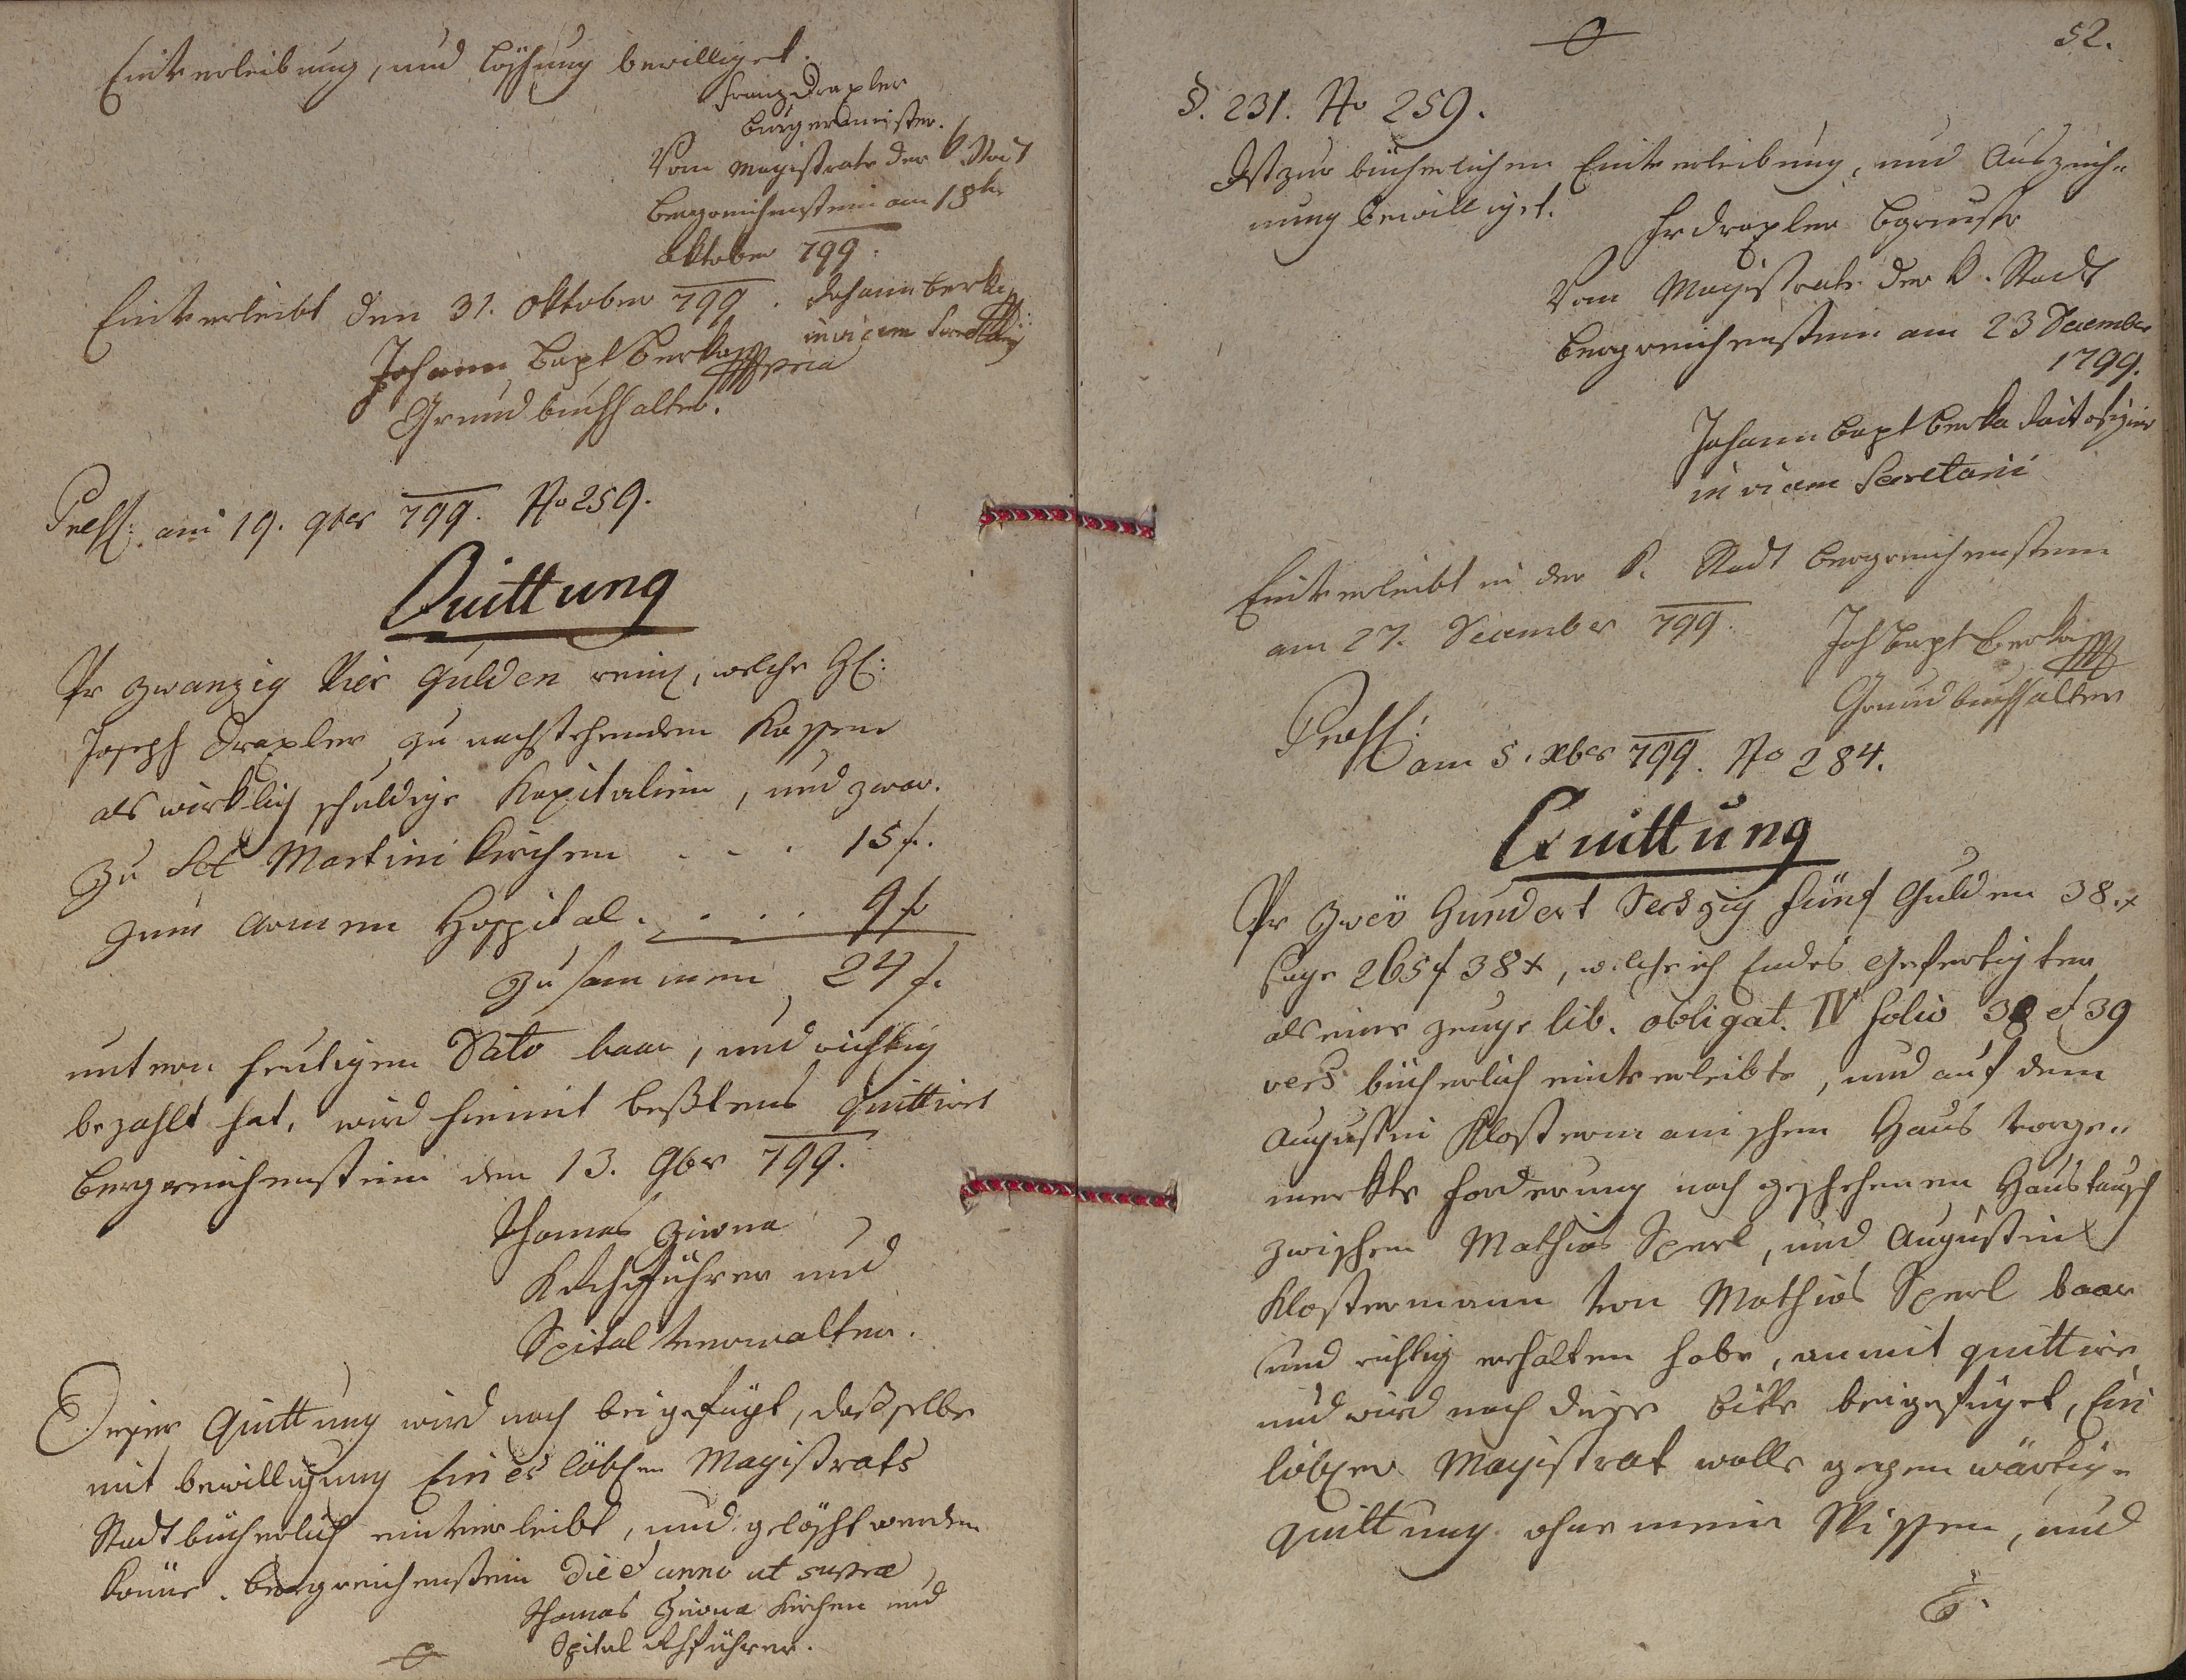 Einverleibung, und Löschung bewilliget.
Franz Draxler
Burgermeister.
Vom Magistrate der k. Stadt
Bergreichenstein am 18ten
Oktober 799.
Einverleibt den 31. Oktober 799. Johann Berka
in vicem Secretarij
Johann Bapt Berka mpria
Grundbuchhalter.
Praes: am 19. 9ber 799. No 259.
Quittung
Pr zwanzig Vier Gulden rein, welche H:
Joseph Draxler zu nachstehenden Kassen
als wirklich schuldige Kapitalien, und zwar.
Zu Sct Martini Kirchen . . . 15 f.
zum Armen Hospital. . . . 9 f
Zusammen 24 f.
untern heutigen Dato baar, und richtig
bezahlt hat, wird hiemit bestens quittirt
Bergreichenstein den 13. 9ber 799.
Thomas Ziwna
führer und
Spital Verwalter.
Dieser Quittung wird noch beigefügt, daß selbe
mit Bewilligung Eines löblen Magistrats
Stadtbücherlich einverleibt, und gelöscht werden
könne. Bergreichenstein die et anno ut supra
Thomas Ziwna Kirchen und
Spital führer.
52.
§. 231. No 259.
Ist zur bücherlichen Einverleibung, und Auszeich-
nung bewilliget.
Fr Draxler Bgrmstr
Vom Magistrate der k. Stadt
Bergreichenstein am 23 December
1799.
Johann Bapt Berka
in vicem Secretarii
Einverleibt in der k. Stadt Bergreichenstein
am 27. December 799.
Joh Bapt Berka mp
Grundbuchhalter
Praes:
am 5. Xber 799. No 284.
Quittung
Pr Zwey Hundert Sechzig fünf Gulden 38. x
sage 265 f 38 x, welche ich Endes Gefertigter
als eine zeuge lib. obligat. IV folio 38 et 39
vers bücherlich einverleibte, und auf dem
Augustin Klostermanischen Haus vorge-
merkte Forderung nach geschehenen Haustausch
zwischen Mathias Sperl, und Augustin
Klostermann von Mathias Sperl baar
und richtig erhalten habe, anmit quittire
und wird noch diese Bitte beigefüget, Ein
löbler Magistrat wolle gegenwärtige
Quittung ohne mein Wissen, und